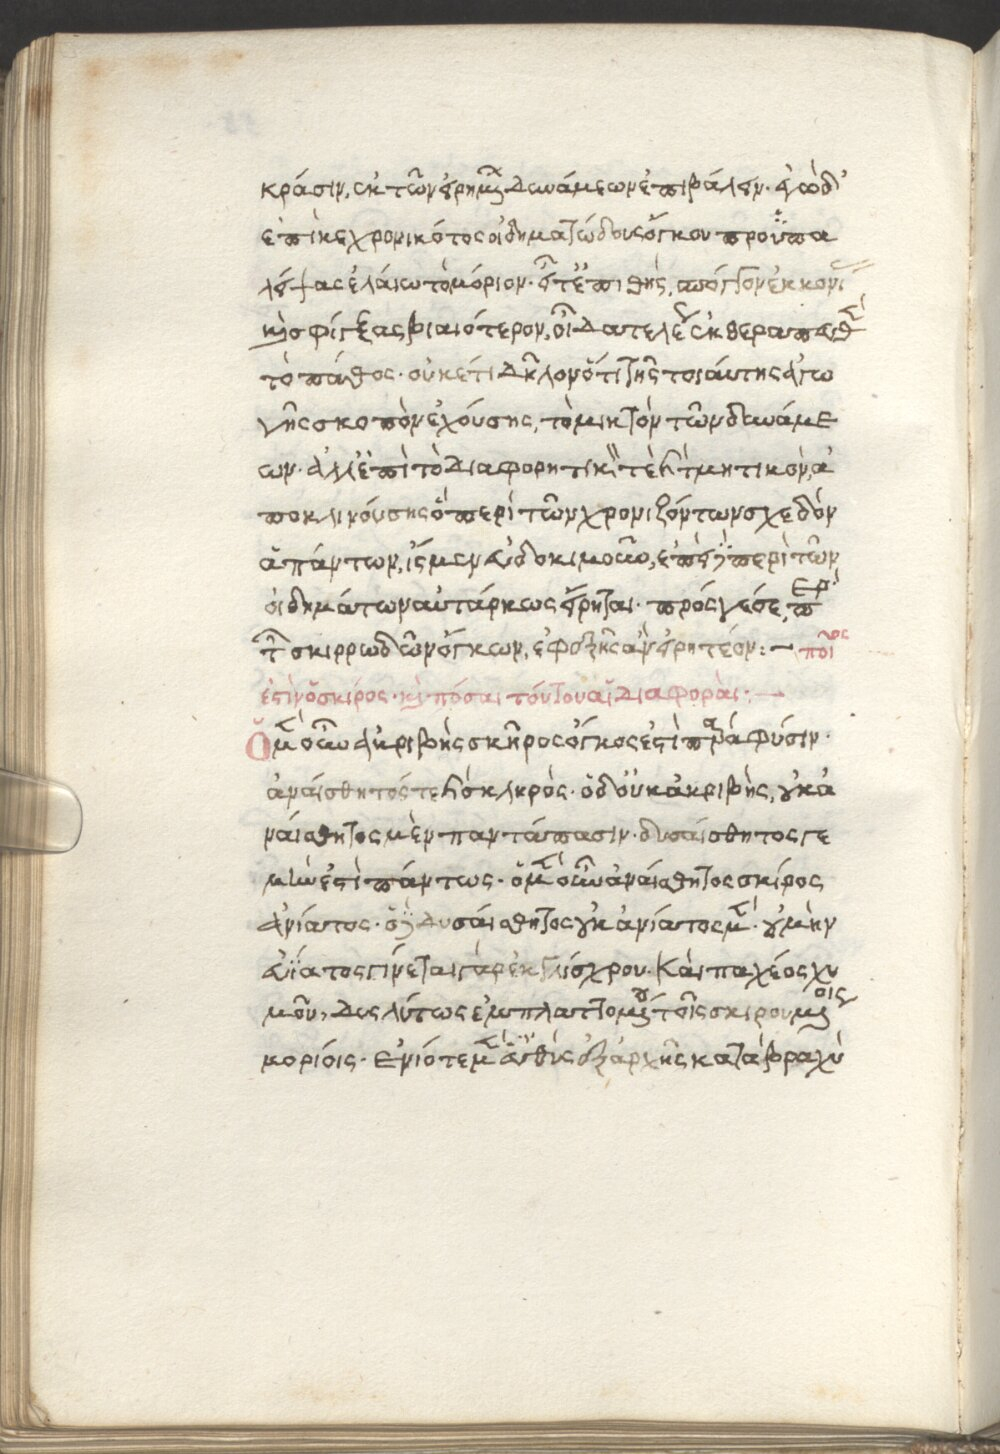 κράσιν, ἐκ τῶν εἰρημένων δυνάμεων ἐπιβάλειν. ἐγὼ δ'
ἐπὶ κεχρονικότος οἰδηματώδους ὄγκου προϋπα
λείψας ἐλαίω τὸ μόριον. εἶτ' ἐπιθεὶς σπόγγον ἐκ κονί
καὶ σφίγξας βιαιότερον, οἶδα τελέως ἐκθεραπευθὲν
τὸ πάθος. οὐκέτι δῆλον ὅτι τῆς τοιάυτης ἀγω
γῆς σκοπὸν ἐχούσης, τὸ μικτὸν τῶν δυνάμε
ων. ἀλλ' ἐπὶ τὸ διαφορητικόν τε καὶ τμητικὸν, ἀ
ποκλινούσης ὅπερ ἐπὶ τῶν χρονιζόντων σχεδὸν
ἁπάντων, ἴσμεν εὐδοκιμοῦν, ἐπεὶ δὲ περὶ τῶν
οἰδημάτων αὐτάρκως εἴρηται. πρός γε σε, περὶ
τῶν σκιρρωδῶν ὄγκων, ἐφεξῆς ἂν εἰρητέον: ποῖος
ἐστὶν ὁ σκίρος. καὶ πόσαι τούτου αἱ διαφοραὶ:
Ὁ μὲν οὖν ἀκριβὴς σκῆρος ὄγκος ἐστὶ παρὰ φύσιν.
ἀναίσθητός τε καὶ σκληρός. ὁ δ' οὐκ ἀκριβὴς, οὐκ ἀ
ναίσθητος μὲν παντάπασιν. δυσαίσθητος γε
μὴν ἐστὶ πάντως. ὁ μὲν οὖν ἀναίσθητος σκίρος
ἀνίατος. ὁ δὲ δυσαίσθητος οὐκ ἀνίατος μὲν. οὐ μὴν
εὐΐατος γίνεται γὰρ ἐκ γλίσχρου. Καὶ παχέος χυ
μοῦ, δυσλύτως ἐμπλαττομένου τοῖς σκιρουμένοις
μορίοις. ἐνιότε μὲν εὐθὺς ἐξ ἀρχῆς κατὰ βραχὺ